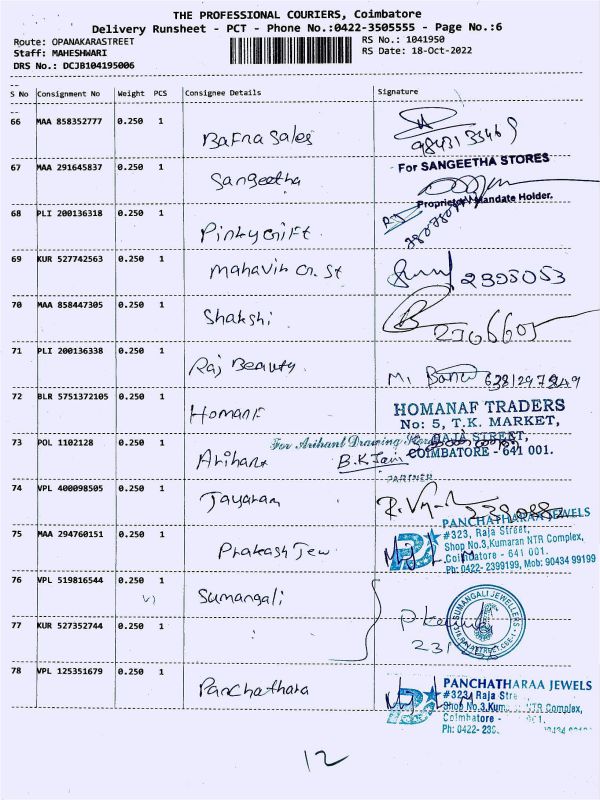 THE PROFESSIONAL COURIERS, Coimbatore
Delivery Runsheet - PCT - Phone No.:0422-3505555 - Page No.:6
Route: OPANAKARASTREET
RS No.: 1041950
Staff: MAHESHWARI
RS Date: 18-Oct-2022
DRS No.: DCJB104195006
S No Consignment No Weight PCS Consignee Details Signature
66 MAA 858352777 0.250 1
Bafna Sales
67 MAA 291645837 0.250 1
For SANGEETHA STORES
Sangeetha
Proprietor/Mandate Holder.
68 PLI 200136318 0.250 1
Pinky Gift
69 KUR 527742563 0.250 1
2395053
70 MAA 858447305 0.250 1
Shakshi
71 PLI 200136338 0.250 1
Raj Beauty
72 BLR 5751372105 0.250 1
Homanf
HOMANAF TRADERS
No: 5, T.K. MARKET,
RAJA STREET,
COIMBATORE - 641 001.
73 POL 1102128 0.250 1
For Arihant Drawing
Arihant
B.K.Jain
PARTNER
74 VPL 400098505 0.250 1
Jayaram
75 MAA 294760151 0.250 1
Prakash Jew
PANCHATHARAA JEWELS
#323, Raja Street,
Shop No.3,Kumaran NTR Complex,
Coimbatore - 641 001.
Ph: 0422- 2399199, Mob: 90434 99199
76 VPL 519816544 0.250 1
Sumangali
SUMANGALI JEWELLERS
77 KUR 527352744 0.250 1
231
78 VPL 125351679 0.250 1
Panchathara
PANCHATHARAA JEWELS
#323, Raja
Shop No.3, NTR Complex,
Coimbatore -
Ph: 0422-
12